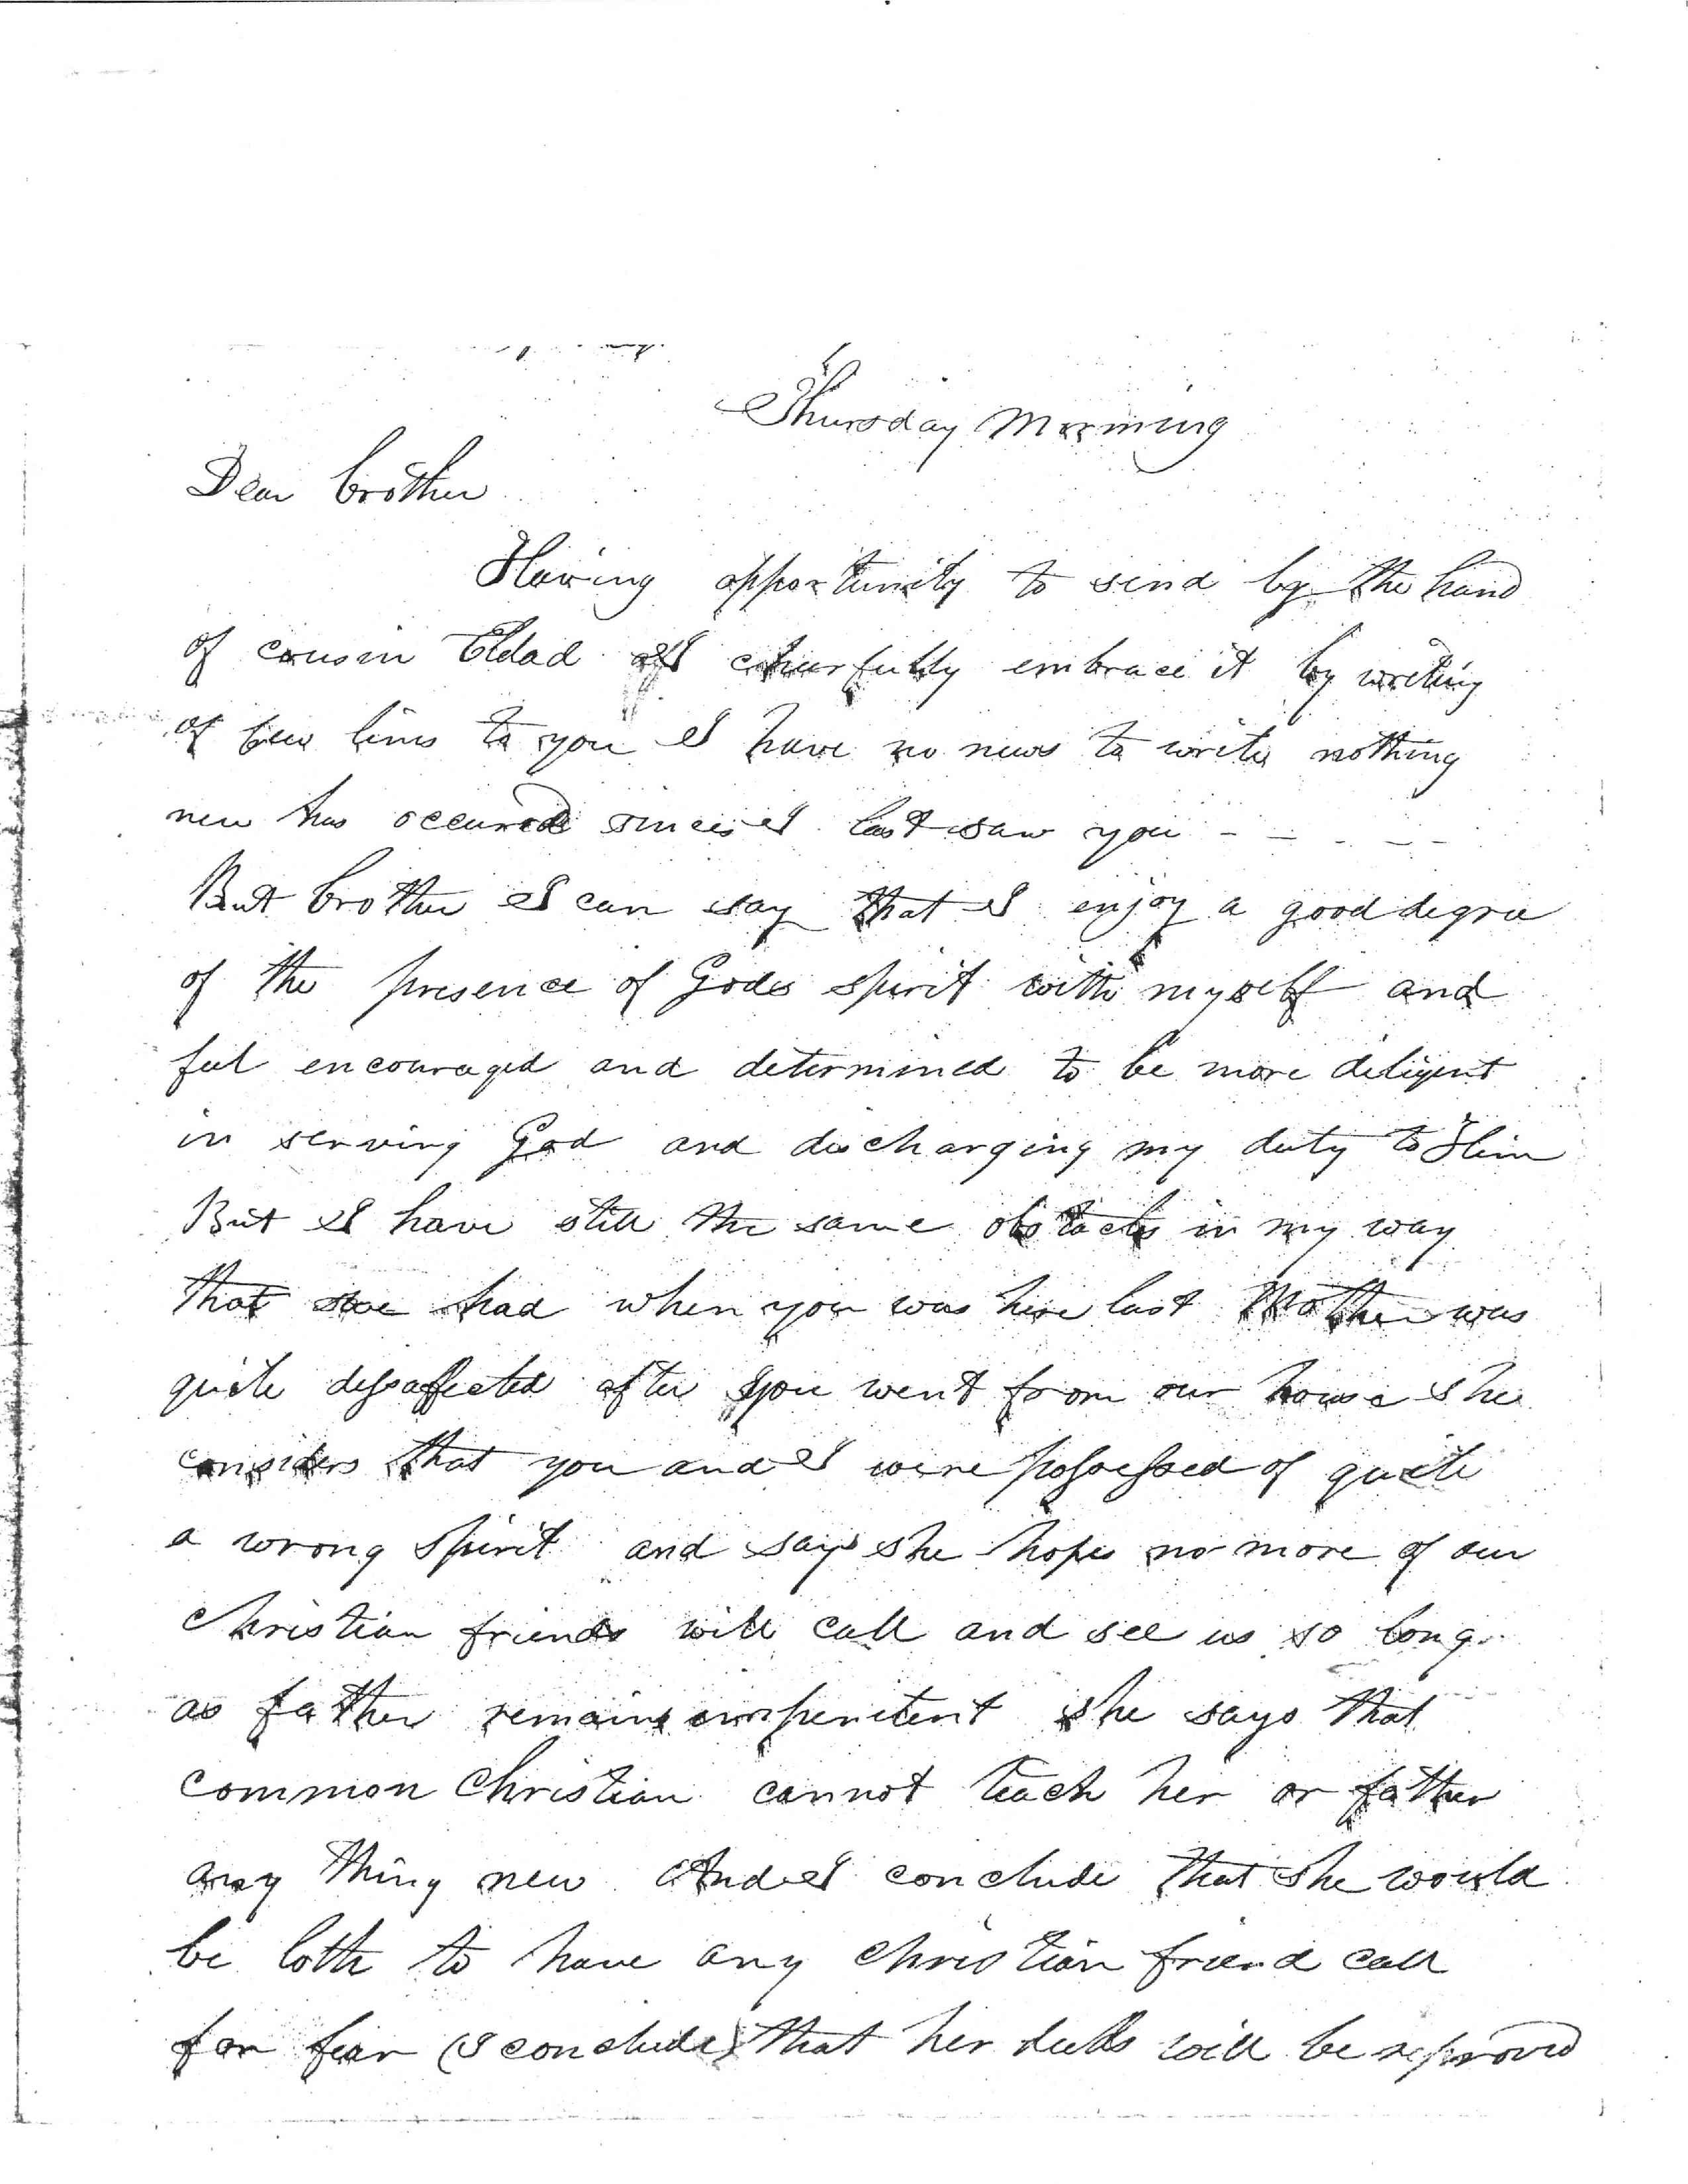 Thursday Morning
Dear brother
Having opportunity to send by the hand
of cousin Eldad I chearfully embrace it by writing
a few lines to you I have no news to write nothing
new has occured since I last saw you - - - - -
But brother I can say that I enjoy a good degree
of the presence of Gods spirit with myself and
feel encouraged and determined to be more deligent
in serving God and discharging my duty to Him
But I have still the same obstacles in my way
that we had when you was here last Mother was
quite dessaffected after you went from our house She
considers that you and I were possessed of quite
a wrong spirit and says she hopes no more of our
Christian friends will call and see us so long
as father remains impenitent She says that
common Christian cannot teach her or father
any thing new And I conclude that She would
be loth to have any christian friend call
for fear (I conclude) that her deeds will be reproved